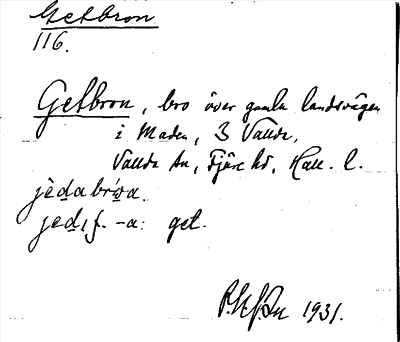 Getbron
116.
Getbron, bro över gamla landsvägen
i Maden, 3 Vallda,
Vallda sn, Fjäre hd, Hall. l.
jèdabrı́ωa.
jed, f. -a: get.
1931.